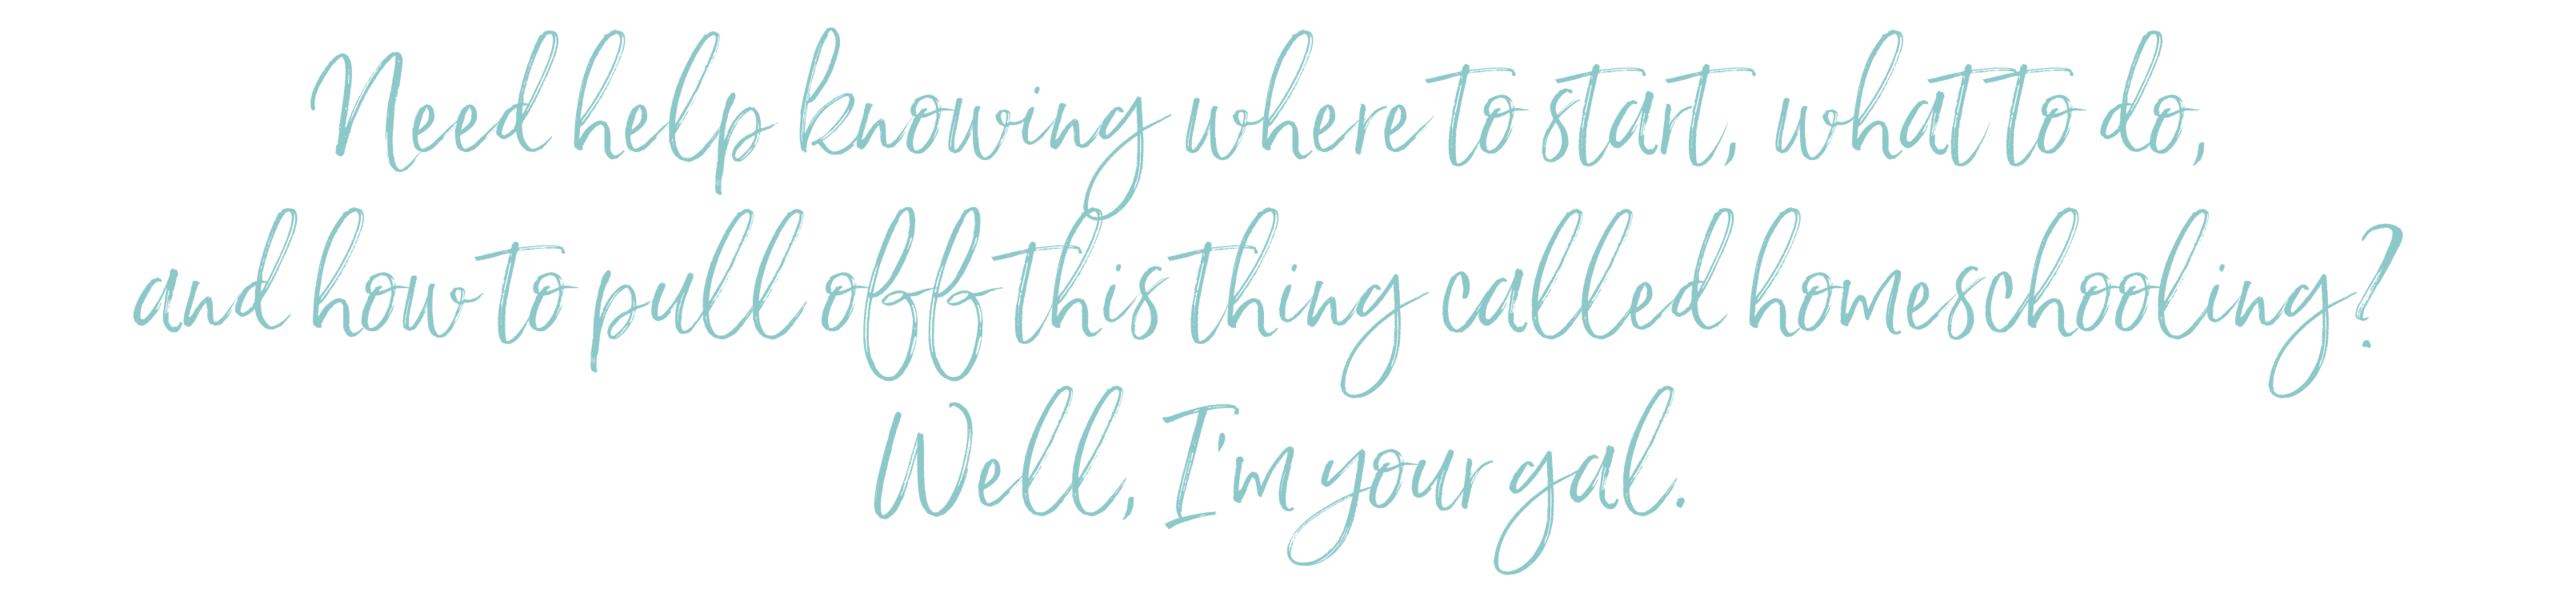 Need help knowing where to start, what to do,
and how to pull off this thing called homeschooling?
Well, I'm your gal.